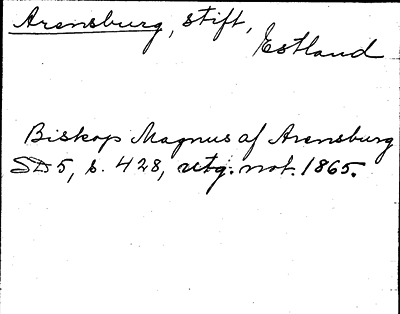 Arensburg, stift,
Estland
Biskop Magnus af Arensburg
SD 5, s. 428, utg. not. 1865.